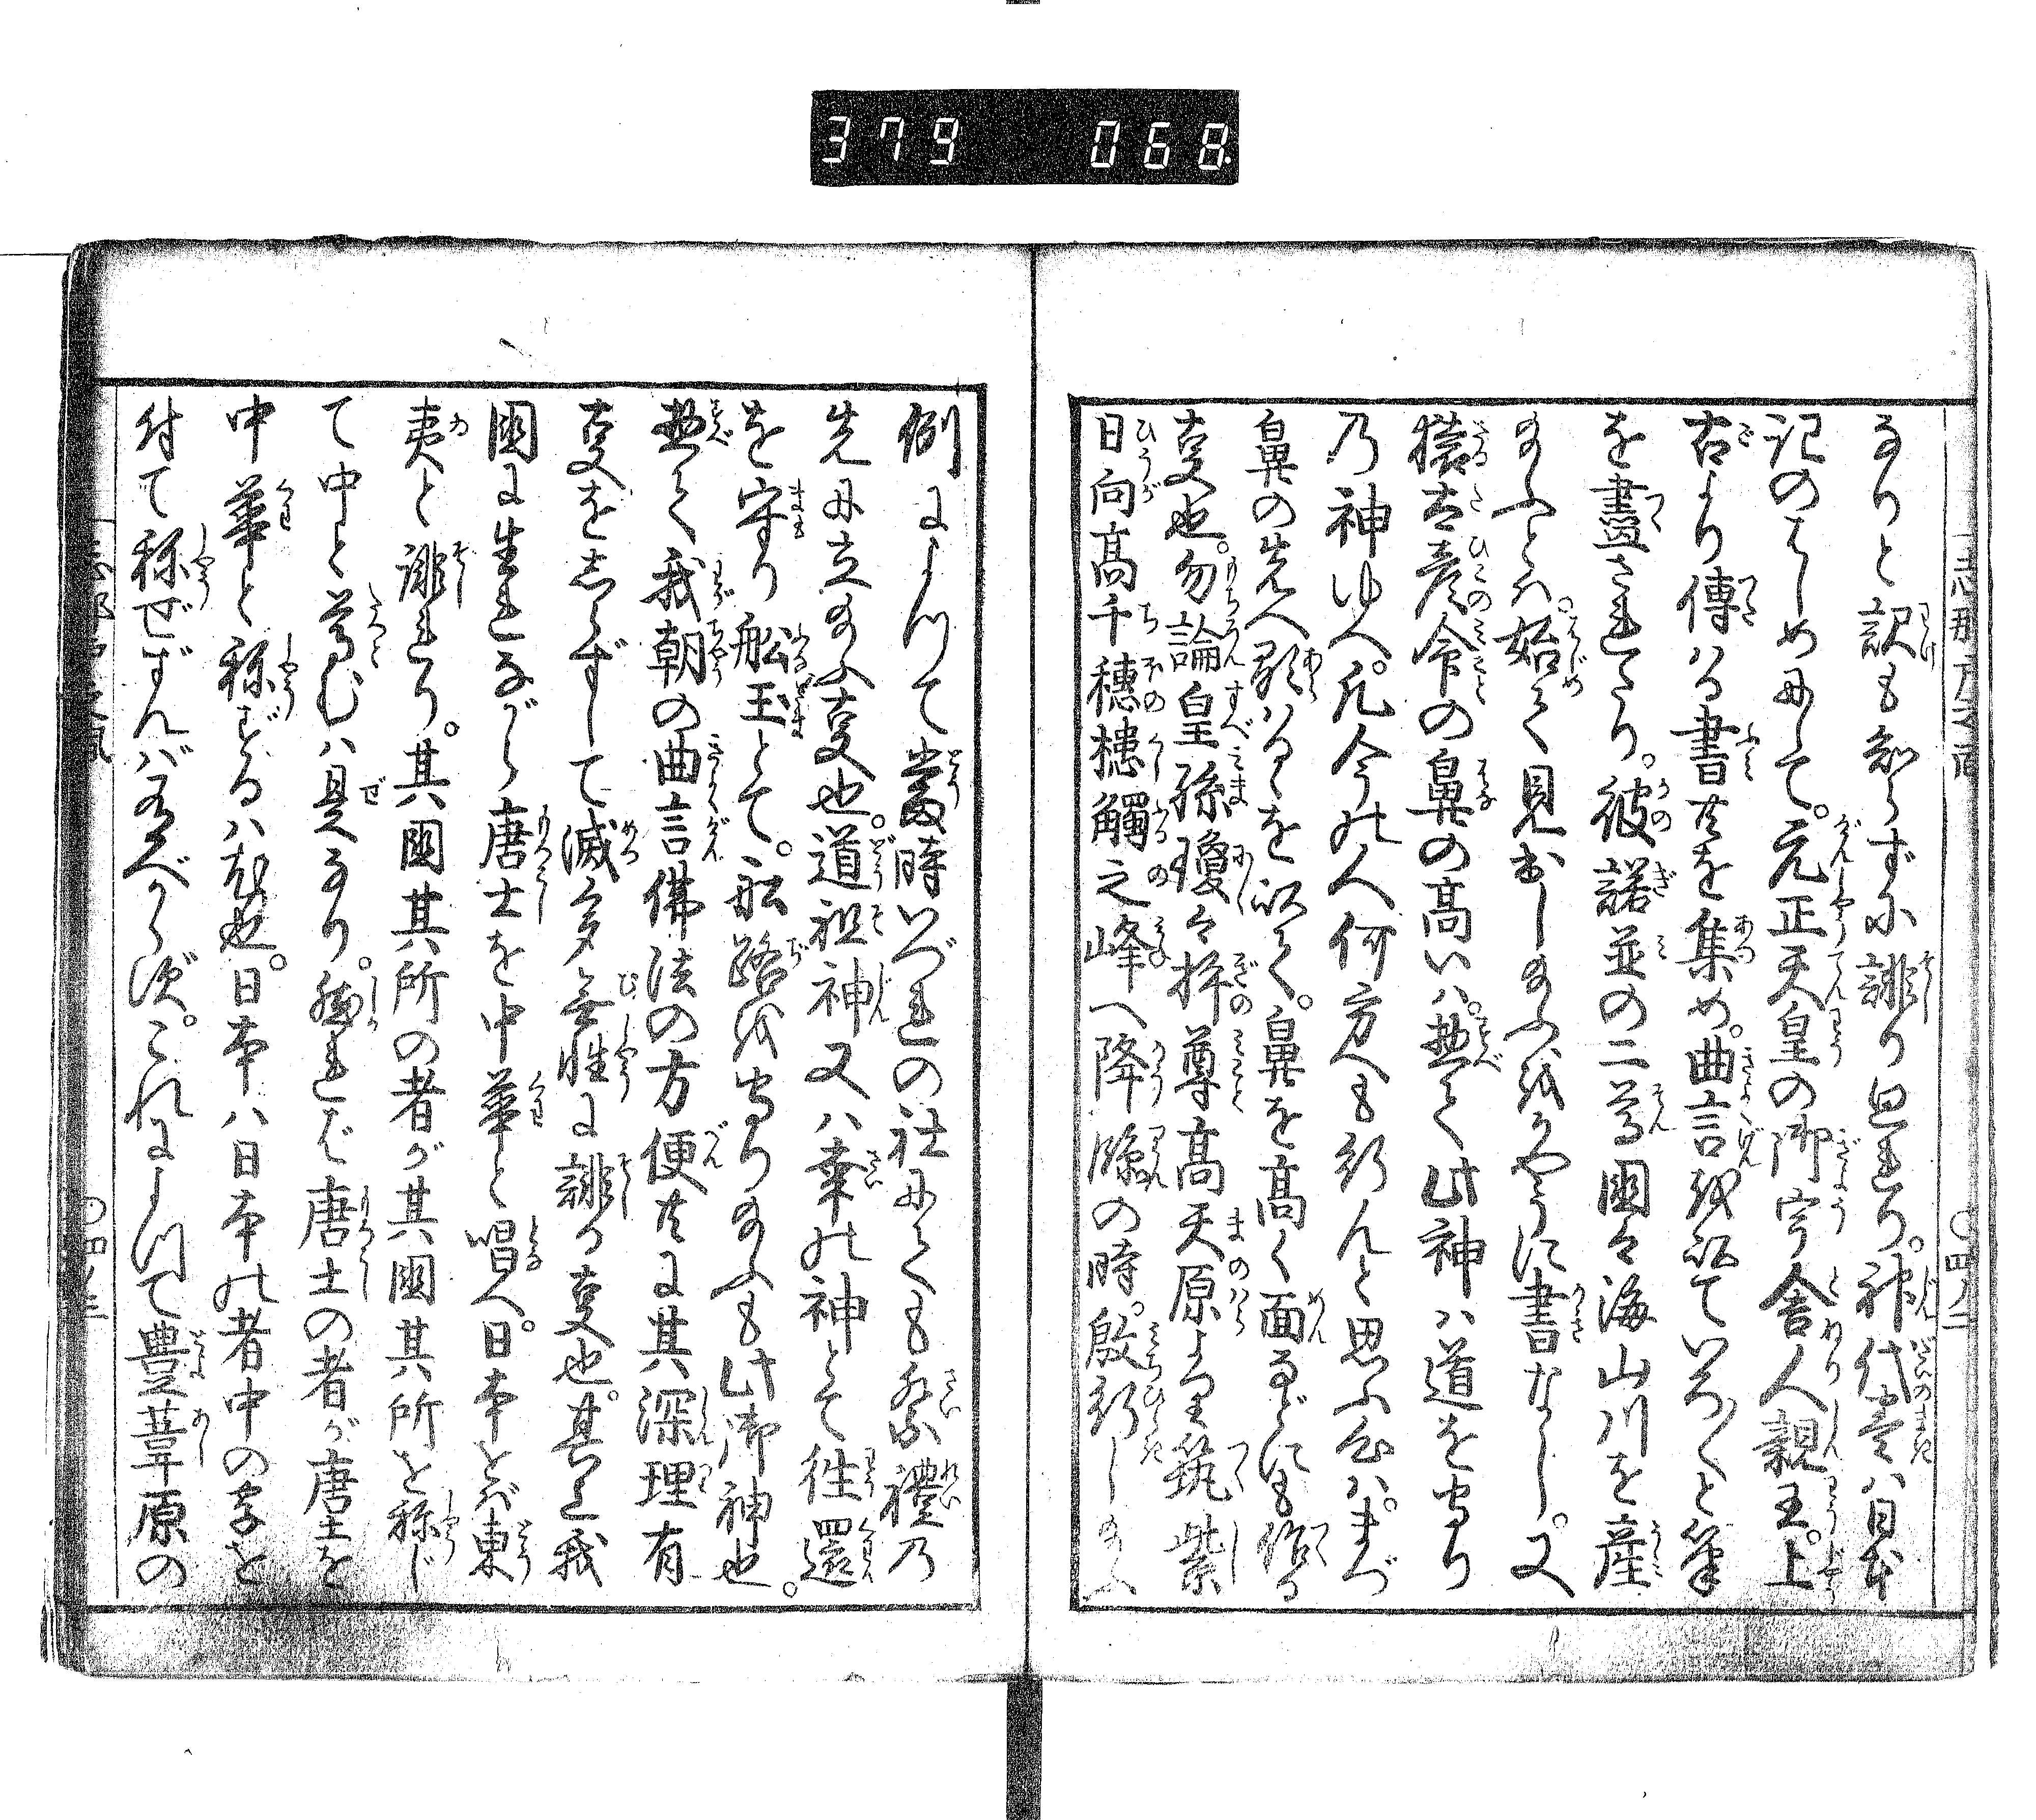 379 068
なりと訳も知らずに誹り出せり。神代巻ハ日本
記のはじめにして。元正天皇の御宇舎人親王。上
古より傳はる書共を集め。曲言を以ていろ〳〵と筆
を盡されたり。彼諾並の二尊国々海山川を産
給ふとハ。始て見出し給ふ我かやうに書なし。又
猿太彦命の鼻の高いハ。惣て此神ハ道を守り
乃神ゆへ。凡今の人何方へも行んと思ふ念ハ。まづ
鼻の先へ顕はるゝを以て。鼻を高く面などにも作る
事也。勿論皇孫瓊々杵尊高天原より筑紫
日向高千穂槵觸之峰へ降臨の時。啓行し給ふ
例によつて當時いづれの社にても祭禮乃
先に立給ふ事也。道祖神又ハ幸の神とて往還
を守り舩玉とて。舩路を守り給ふも此御神也。
惣て我朝の曲言佛法の方便共に其深理有
事をしらずして滅多無性に誹る事也。其上我
国に生れながら唐土を中華と唱へ。日本をば東
夷と誹れり。其国其所の者が其国其所を称じ
て中と尊むハ是なり。然れば唐土の者が唐土を
中華と称ずるハ尤也。日本ハ日本の者中の字を
付て称ぜずんば有べからず。これによつて豊葦原の